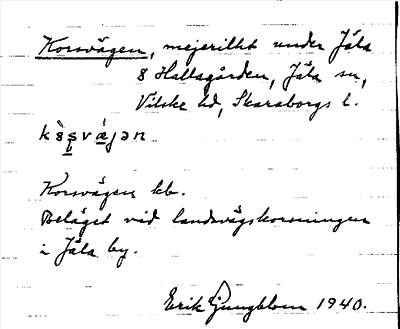 Korsvägen, mejerilht under Jäla
8 Hallagården, Jäla sn,
Vilske hd, Skaraborgs l.
Korsvägen kb.
Beläget vid landsvägskorsningen
i Jäla by.
Erik Ljungblom 1940.